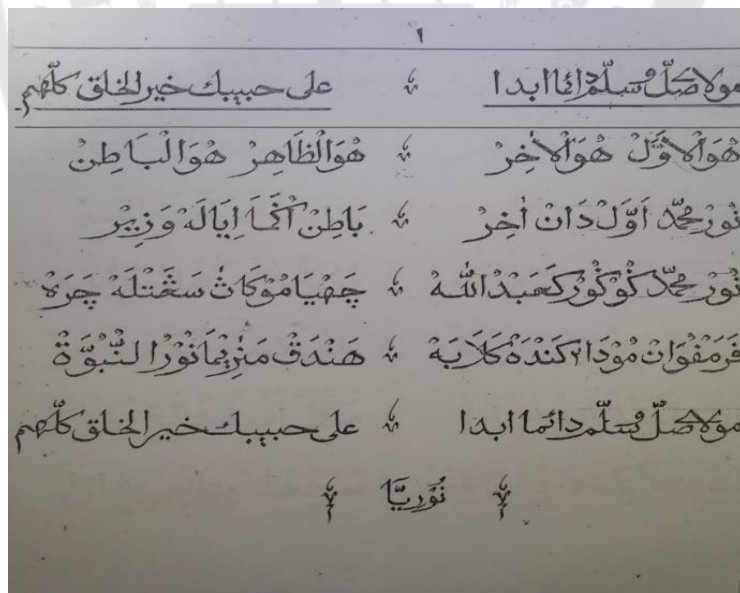 ١
مولاصلّ وسلّم دائما ابدا ؞ على حبيبك خير الخلق كلّهم
هُوَالْاَوَّلْ هُوَالْاٰخِرْ ؞ هُوَالْظَاهِرْ هُوَالْبَاطِنْ
نُوْرْ مُحَمَّدْ اَوَّلْ دَانْ اٰخِرْ ؞ بَاطِنْ اَڬَمَا اِيَالَهْ وَزِيْرْ
نُوْرْ مُحَمَّدْ ڬُوْڬُوْرْ كَعَبْدُاللّٰهْ ؞ چَهْيَا مُوْكَاثْ سَڠَتْلَهْ چَرَهْ
فَرَمْفُوَانْ مُوْدَا٢ كَنْدَهْ كَلَابَهْ ؞ هَنْدَقْ مَنْرِيْمَا نُوْرُالنُّبُوَّةْ
مولاصلّ وسلّم دائما ابدا ؞ على حبيبك خير الخلق كلّهم
؞ نُوْرِيَّا ؞